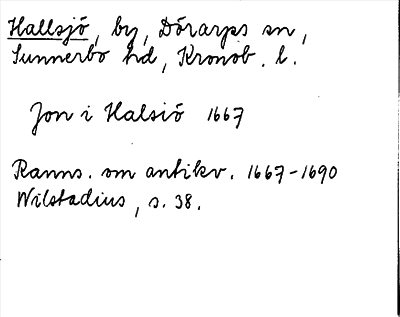 Hallsjö, by, Dörarps sn,
Sunnerbo hd, Kronob. l.
Jon i Halsiö 1667
Ranns. om antikv. 1667-1690
Wilstadius, s. 38.